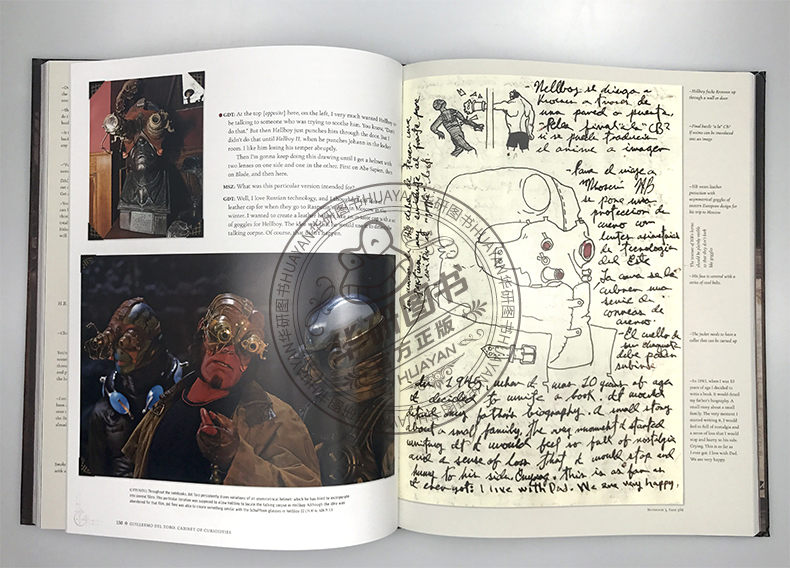 GDT: At the top [opposite] here, on the left, I very much wanted Hellboy to
be talking to someone who was trying to soothe him. You know, "Don't
do that." But then Hellboy just punches him through the door. But I
didn't do that until Hellboy II, when he punches Johann in the locker
room. I like him losing his temper abruptly.
Then I'm gonna keep doing this drawing until I get a helmet with
two lenses on one side and one in the other. First on Abe Sapien, then
on Blade, and then here.
MSZ: What was this particular version intended for?
GDT: Well, I love Russian technology, and
leather cap for when they go to
winter. I wanted to create a leather
of goggles for Hellboy. The idea
talking corpse. Of course, that didn't happen.
(OPPOSITE) Throughout the notebooks, del Toro persistently draws variations of an asymmetrical helmet, which he has tried to incorporate
into several films. This particular iteration was supposed to allow Hellboy to locate the talking corpse in Hellboy. Although the idea was
abandoned for that film, del Toro was able to create something similar with the Schufftein glasses in Hellboy II
156 GUILLERMO DEL TORO: CABINET OF CURIOSITIES
- Hellboy se
Kroenen a través de
una pared o puerta.
- Pelea "final" CB?
si se puede traducir
el anime a imagen
- Para el viaje a
Moscú HB
se pone una
protección de
cuero con
lentes asimétricos
de tecnología
del Este
La cara se la
cubren una
serie de
correas de
acero.
- El cuello de
su chaqueta
debe poder
subirse
In 1985, when I was 20 years of age
I decided to write a book. It would
detail my father's biography. A small story
about a small family. The very moment I started
writing it I would feel so full of nostalgia
and a sense of loss that I would stop and
hurry to his side. Crying. This is as far as
I ever got: I live with Dad. We are very happy.
- Hellboy fucks Kroenen up
through a wall or door
- Final battle "à la" CB? If
anime can be translated
into an image
- HB wears leather
protection with
asymmetrical goggles of
eastern European design for
his trip to Moscow
- His face is covered with a
series of steel belts.
- The jacket needs to have a
collar that can be turned up
- In 1985, when I was 20
years of age I decided to
write a book. It would detail
my father's biography. A
small story about a small
family. The very moment I
started writing it, I would
feel so full of nostalgia and
a sense of loss that I would
stop and hurry to his side.
Crying. This is as far as
I ever got: I live with Dad.
We are very happy.
华研图书 HUAYAN
官方正版